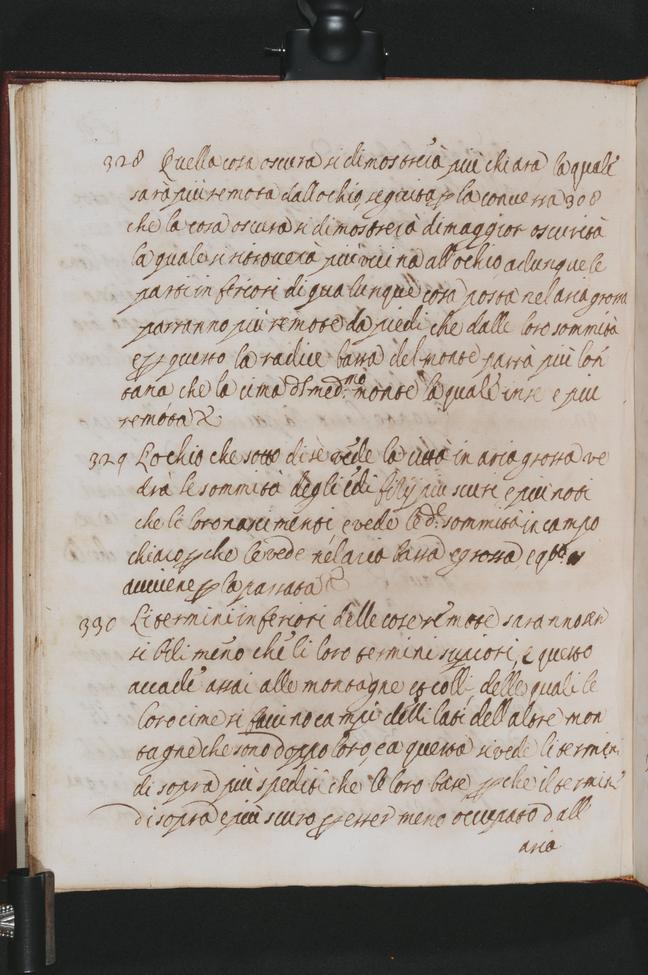 328 Quella cosa oscura si dimostrerà piu chiara la quale
sarà piu remota dall ochio seguita p la conversa 308
che la cosa oscura si dimostrerà di maggior oscurità
la quale si ritroverà piu vicina all'ochio adunque le
parti inferiori di qualunque cosa posta nel aria grossa
parranno più remote da piedi che dalle loro sommità
e p questo la radice bassa del monte parrà più lon
tana che la cima del med.mo monte la quale in se e piu
remota
329 Lochio che sotto di sè vede la città in aria grossa ve
drà le sommità degli edifitij piu scuri e piu noti
che li loro nascimenti e vede le d.e sommità in campo
chiaro p che le vede nel aria bassa e grossa e q.to
avviene p la passata
330 Li termini inferiori delle cose remote saranno sen
sibili meno che li loro termini supiori, e questo
accade assai alle montagne et colli, delle quali le
loro cime si faccino campi delli lati dell'altre mon
tagne che sono doppo loro, ea questa si vede li termini
di sopra più spediti che le loro base p che il termine
di sopra e più scuro p esser meno occupato dall
aria